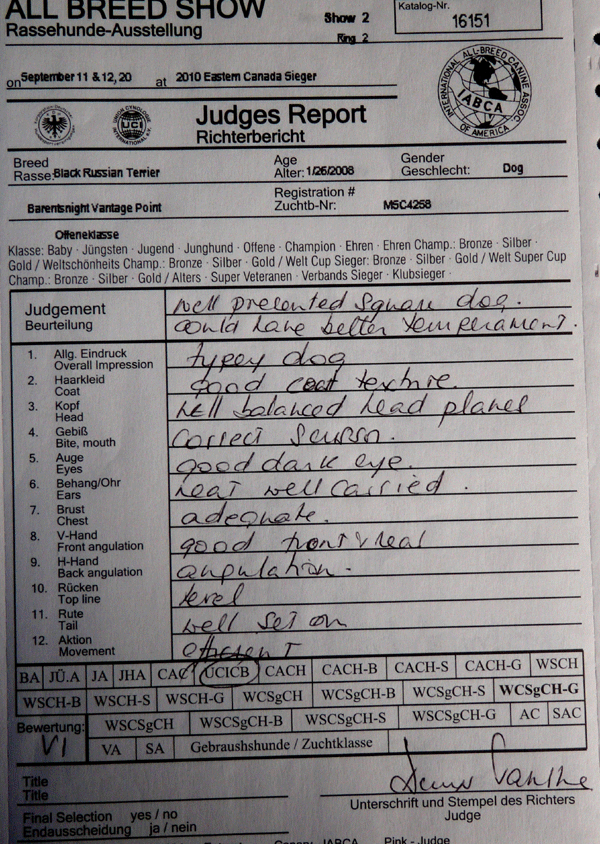 ALL BREED SHOW
Rassehunde-Ausstellung
Show 2
Ring 2
Katalog-Nr.
16151
on September 11 & 12, 20 at 2010 Eastern Canada Sieger
INTERNATIONAL ALL-BREED CANINE ASSOC. OF AMERICA
IABCA
UCI
Judges Report
Richterbericht
Breed
Rasse: Black Russian Terrier
Age
Alter: 1/26/2008
Gender
Geschlecht: Dog
Barentsnight Vantage Point
Registration #
Zuchtb-Nr: M5C4258
Offeneklasse
Klasse: Baby · Jüngsten · Jugend · Junghund · Offene · Champion · Ehren · Ehren Champ.: Bronze · Silber ·
Gold / Weltschönheits Champ.: Bronze · Silber · Gold / Welt Cup Sieger: Bronze · Silber · Gold / Welt Super Cup
Champ.: Bronze · Silber · Gold / Alters · Super Veteranen · Verbands Sieger · Klubsieger ·
Judgement
Beurteilung
well presented square dog.
could have better temperament.
1. Allg. Eindruck
Overall Impression
typey dog
2. Haarkleid
Coat
good coat texture.
3. Kopf
Head
well balanced head planes
4. Gebiß
Bite, mouth
correct scissor.
5. Auge
Eyes
good dark eye.
6. Behang/Ohr
Ears
neat well carried.
7. Brust
Chest
adequate.
8. V-Hand
Front angulation
good front & rear
9. H-Hand
Back angulation
angulation.
10. Rücken
Top line
level
11. Rute
Tail
well set on
12. Aktion
Movement
efficient
BA JÜ.A JA JHA CAC UCICB CACH CACH-B CACH-S CACH-G WSCH
WSCH-B WSCH-S WSCH-G WCSgCH WCSgCH-B WCSgCH-S WCSgCH-G
Bewertung: WSCSgCH WSCSgCH-B WSCSgCH-S WSCSgCH-G AC SAC
V1 VA SA Gebraushshunde / Zuchtklasse
Title
Title
Unterschrift und Stempel des Richters
Judge
Final Selection yes / no
Endausscheidung ja / nein
IABCA Pink - Judge